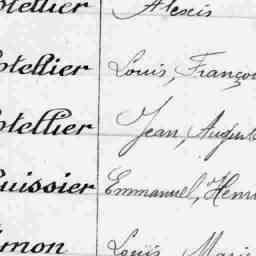 otellier Alexis
otellier Louis, Françoi
otellier Jean, August
uissier Emmanuel, Henri
imon Louis, Marie